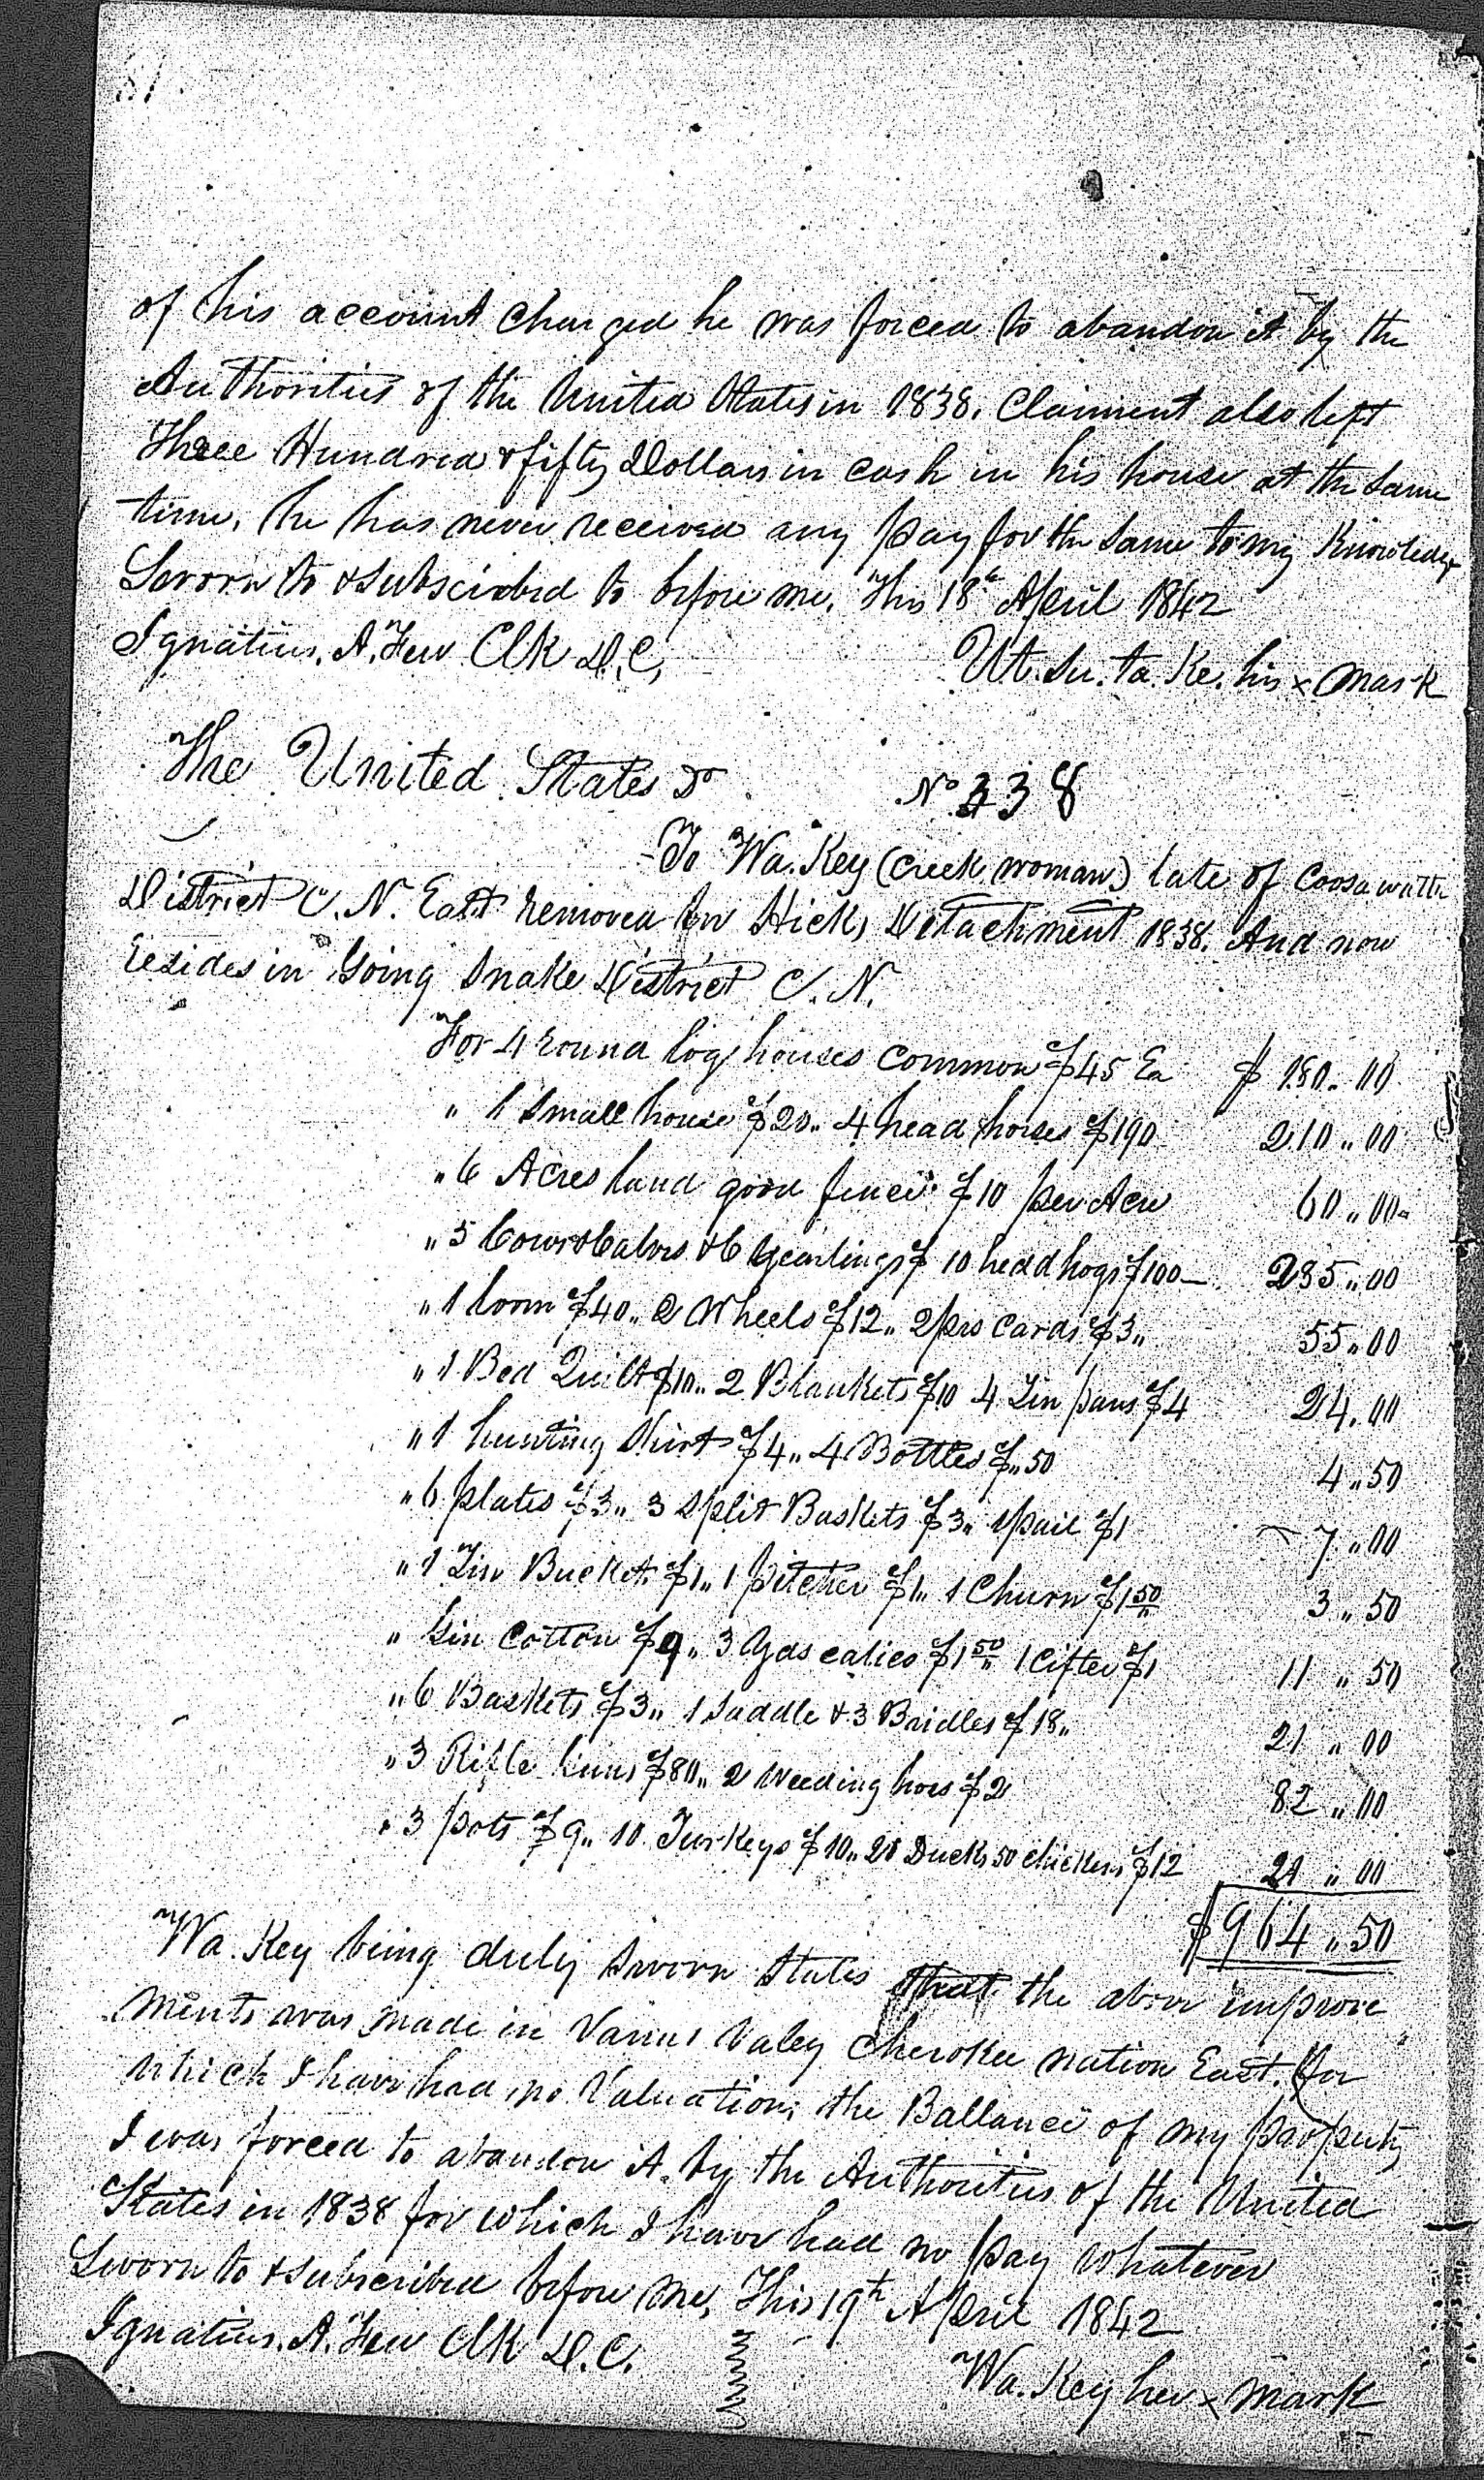 81
of his account charged he was forced to abandon it by the
Authorities of the United States in 1838. Claiment also left
Three Hundred & fifty Dollars in cash in his house at the same
time, he has never received any pay for the same to my Knowledge
Sworn to & subscribed to before me, This 18th April 1842
Ignatius. A. Few Clk D.C,
Ut.su.ta.Ke. his x mark
The United States Dr
No 338
To Wa.Key (creek woman) late of Coosawatte
District C.N. East removed in Hicks Detachment 1838. And now
resides in Going Snake District C.N.
For 4 round log houses common $45 Ea $ 180.00
" 1 small house $20.. 4 head horses $190 210..00
" 6 Acres land good fence $10 per Acre 60..00
" 5 Cows & Calves & 6 Yearlings $ 10 head hogs $100 285..00
" 1 loom $40.. 2 Wheels $12.. 2 prs Cards $3.. 55..00
" 1 Bed Quilt $10.. 2 Blankets $10 4 Tin pans $4 24.00
" 1 hunting Shirt $4.. 4 Bottles $..50 4..50
" 6 plates $3.. 3 split Baskets $3.. 1 pail $1 7..00
" 1 Tin Bucket $1.. 1 pitcher $1.. 1 Churn $1 50 3..50
" Gin Cotton $9.. 3 Yds calico $1 50 1 cifter $1 11..50
" 6 Baskets $3.. 1 Saddle & 3 Bridles $18.. 21..00
" 3 Rifle Guns $80.. 2 weeding hoes $2 82..00
" 3 pots $9.. 10 Turkeys $10.. 20 Ducks 50 chickens $12 21..00
$964..50
Wa.Key being duly sworn states that the above improve
ments was made in Vanns Valey Cherokee nation East. for
which I have had no Valuation, the Ballance of my property
I was forced to abandon it by the Authorities of the United
States in 1838 for which I have had no pay whatever
Sworn to & subscribed before me, This 19th April 1842
Ignatius. A. Few Clk D.C.
Wa.Key her x mark